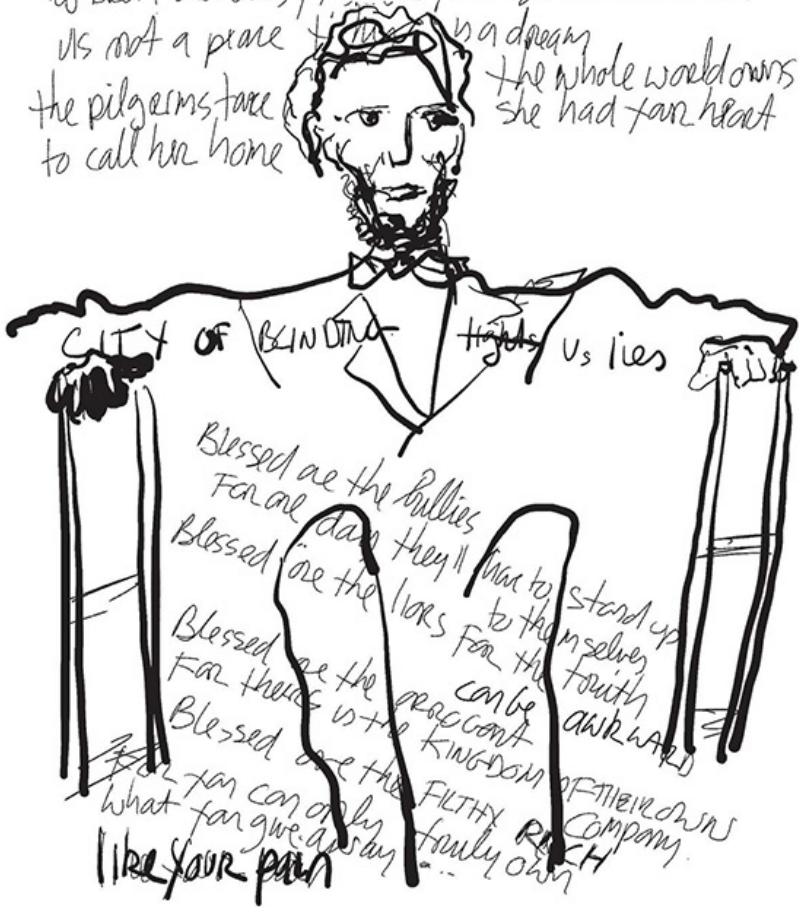 us not a place is a dream
the whole world owns
the pilgrims face
she had your heart
to call her home
CITY OF BLINDING Lights Us lies
Blessed are the Bullies
For one day they'll have to stand up
to themselves
Blessed are the liars For the truth
can be AWKWARD
Blessed are the arrogant
For theirs is the KINGDOM OF THEIR OWN
Company.
Blessed are the FILTHY RICH
For you can only truly own
what you give away
like your pain